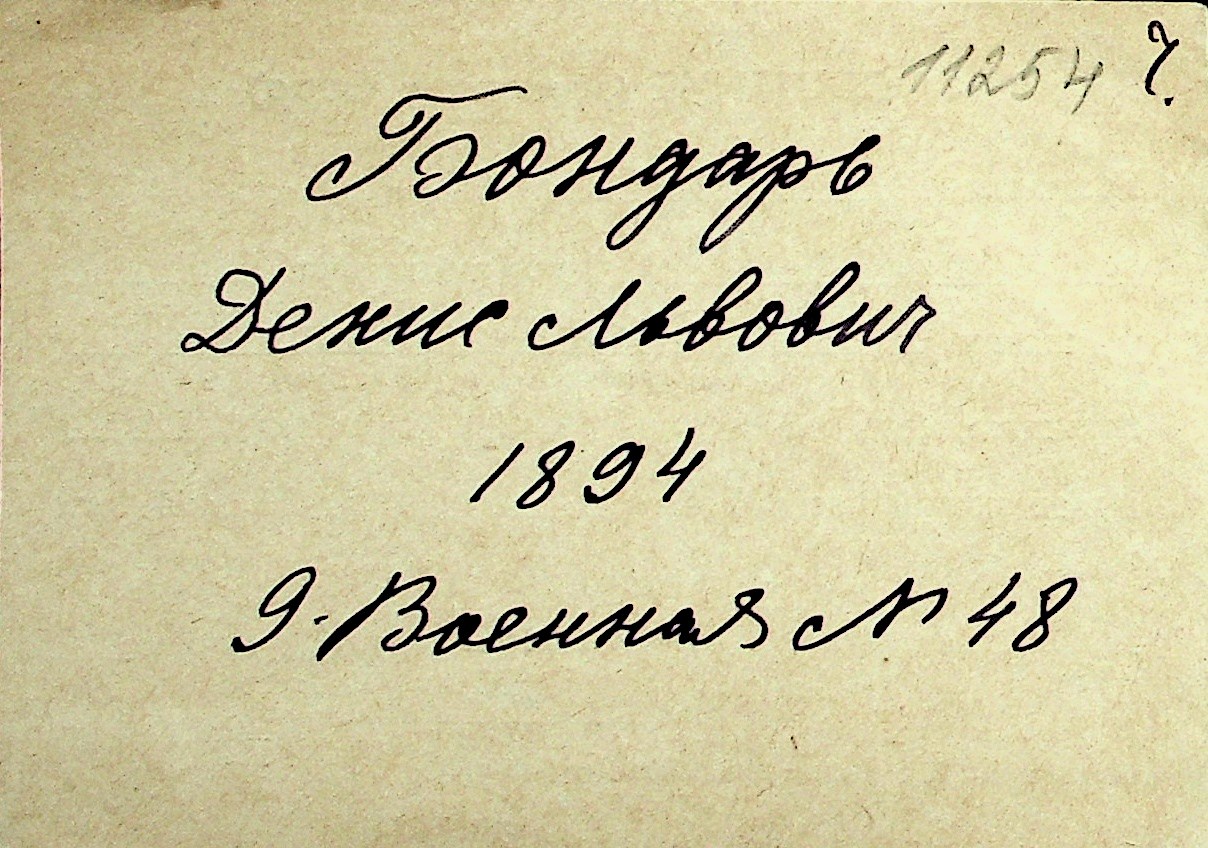 11254 Ч.
Бондарь
Денис Львович
1894
9. Военная № 48